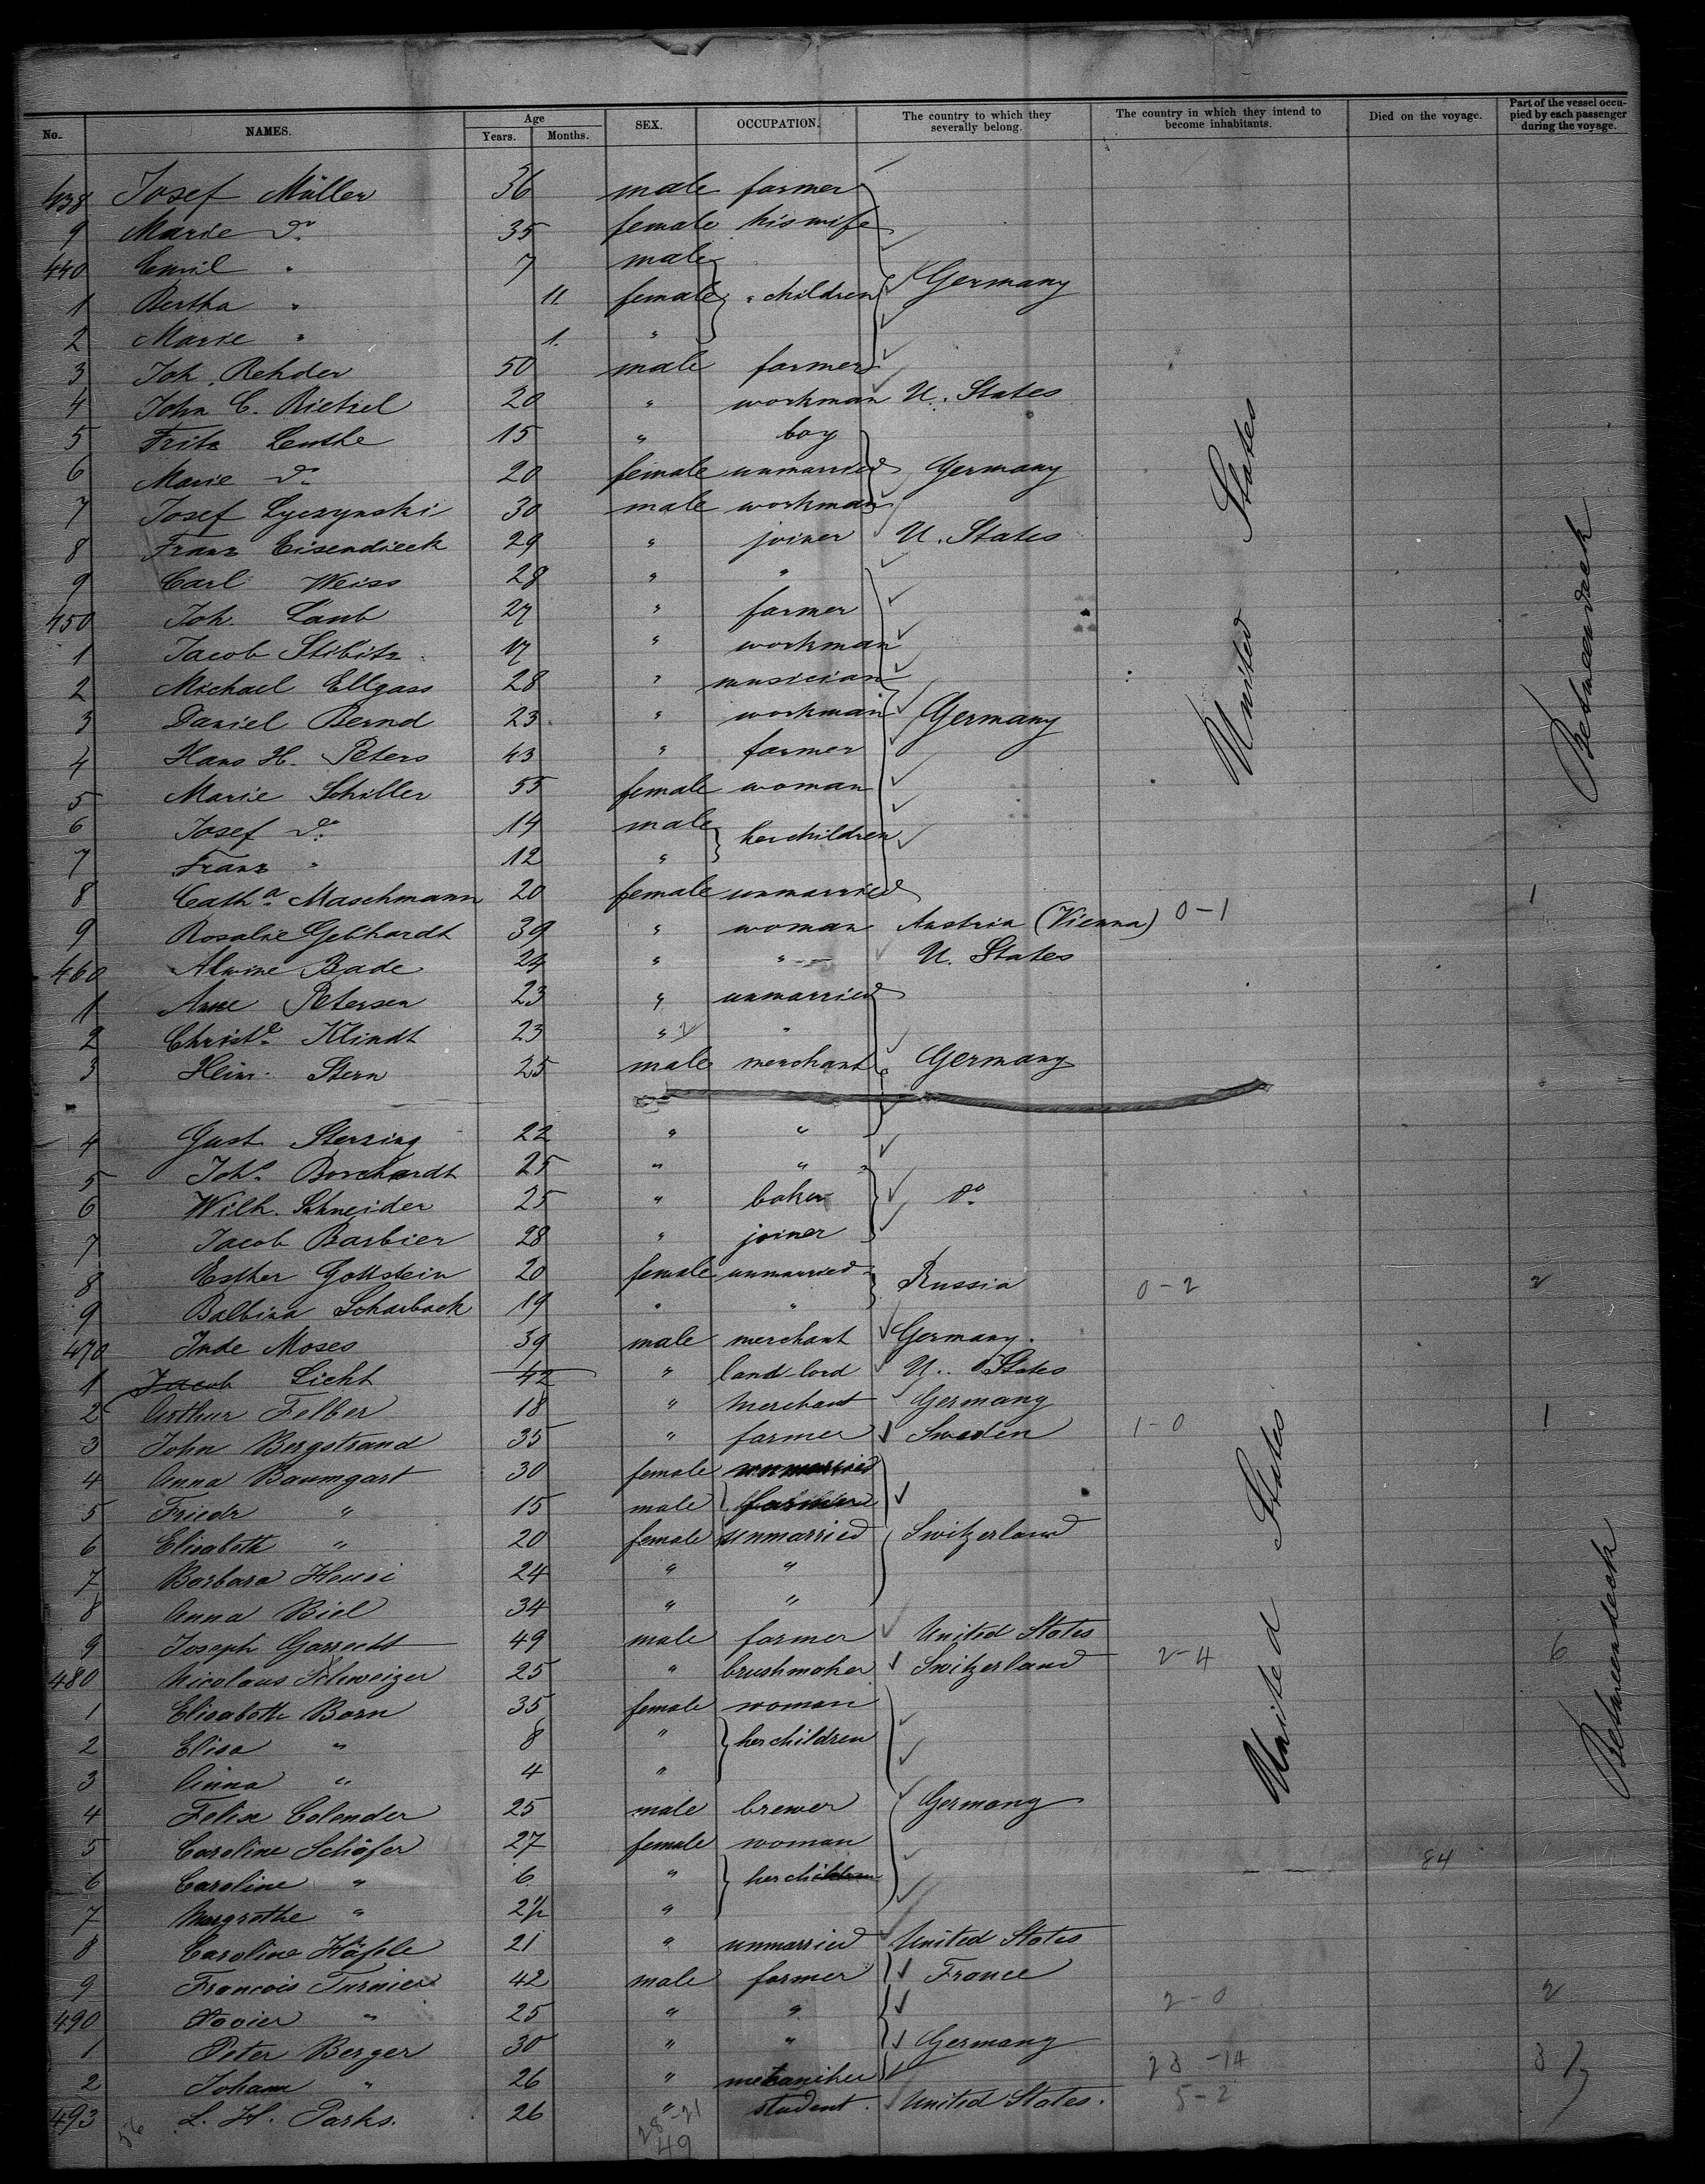 No. NAMES. Age Years. Months. SEX. OCCUPATION. The country to which they severally belong. The country in which they intend to become inhabitants. Died on the voyage. Part of the vessel occupied by each passenger during the voyage.
438 Josef Müller 36 male farmer
9 Marie do 35 female his wife
440 Emil " 7 male
1 Bertha " 11 female " children Germany
2 Marie " 1 "
3 Joh. Rehder 50 male farmer
4 John C. Rietzel 20 " workman U. States
5 Fritz Lenthe 15 " boy
6 Marie do 20 female unmarried Germany
7 Josef Lyczynski 30 male workman
8 Franz Eisendieck 29 " joiner U. States
9 Carl Weiss 28 " "
450 Joh. Laub 27 " farmer
1 Jacob Stibitz 17 " workman
2 Michael Ellgass 28 " musician
3 Daniel Bernd 23 " workman Germany
4 Hans H. Peters 43 " farmer
5 Marie Schiller 55 female woman
6 Josef do 14 male her children
7 Franz " 12 "
8 Catha Maschmann 20 female unmarried 1
9 Rosalie Gebhardt 39 " woman Austria (Vienna) 0-1
460 Alwine Bade 24 " " U. States
1 Anne Petersen 23 " unmarried
2 Christe Klindt 23 " "
3 Heinr. Stern 25 male merchant Germany
4 Gust. Sterzing 22 " "
5 Joh. Borchardt 25 " "
6 Wilh. Schneider 25 " baker do
7 Jacob Barbier 28 " joiner
8 Esther Gottstein 20 female unmarried Russia 0-2 2
9 Balbina Scharbach 19 " "
470 Jude Moses 39 male merchant Germany.
1 Jacob Licht 42 " land-lord U. States
2 Arthur Felber 18 " Merchant Germany
3 John Bergstrand 35 " farmer Sweden 1-0 1
4 Anna Baumgart 30 female unmarried
5 Friedr " 15 male farmer
6 Elisabeth " 20 female unmarried Switzerland
7 Barbara Heusi 24 " "
8 Anna Biel 34 " "
9 Joseph Garrecht 49 male farmer United States
480 Nicolaus Schweizer 25 " brushmaker Switzerland 2-4 6
1 Elisabeth Born 35 female woman
2 Elisa " 8 " her children
3 Anna " 4 "
4 Felix Colender 25 male brewer Germany
5 Caroline Schäfer 27 female woman
6 Caroline " 6 " her children 84
7 Margrethe " 2½ "
8 Caroline Häfele 21 " unmarried United States
9 Francois Turnier 42 male farmer France
490 Xavier " 25 " " 2-0 2
1 Peter Berger 30 " " Germany
2 Johann " 26 " mecaniker 23-14
493 L. H. Parks. 26 " student. United States. 5-2
28-21
49
United States
Betweendeck
United States
Betweendeck